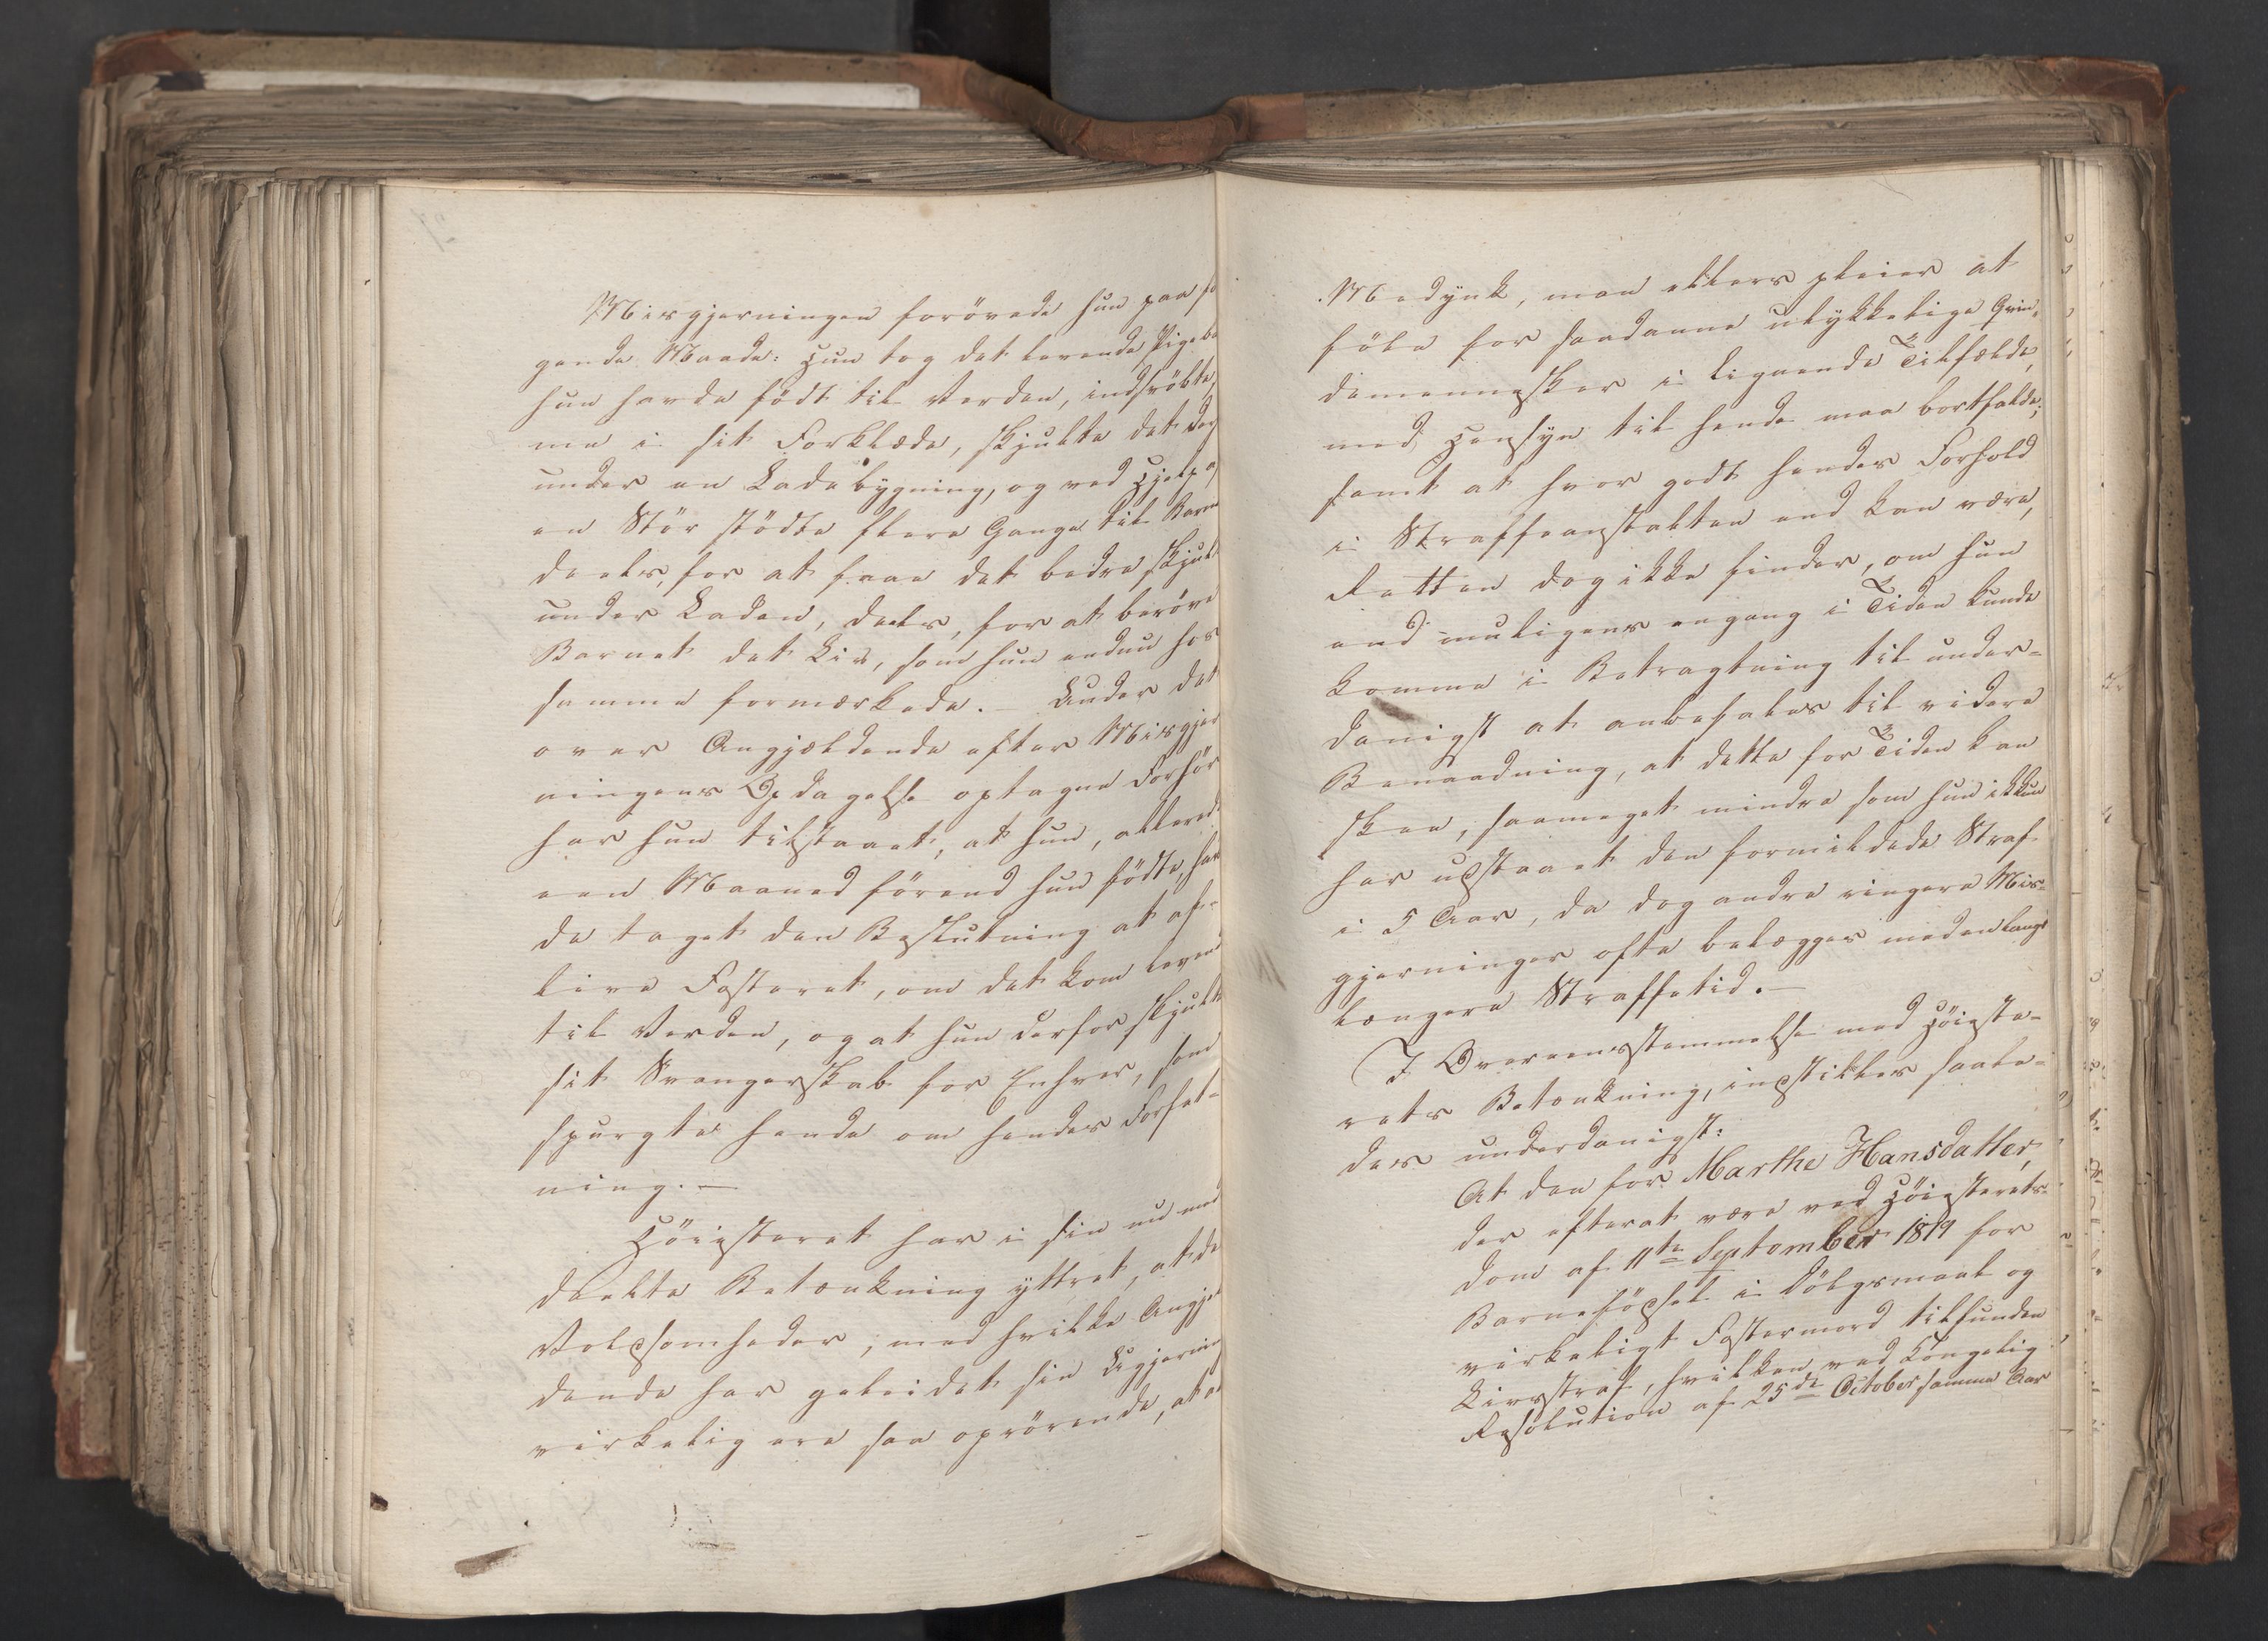 Misgjerningen forövede hun paa fö
gende Maade: Hun tog det levende Pigeba
hun havde födt til Verden, indsvöbte
me i sit Forklæde, skjulte det der
under en Ladebygning, og ved Hjelp a
en Stör stödte flere Gange til Barn
deels, for at faae det bedre skjul
under Laden, deels, for at beröve
Barnet det Liv, som hun endnu hos
samme formærkede. – Under det
over Angjældende efter Misgjer
ningens Opdagelse optagne Forhör
har hun tilstaaet, at hun, allered
een Maaned förend hun födte, hav
de taget den Beslutning at af-
live Fosteret, om det kom leven
til Verden, og at hun derfor skjult
sit Svangerskab for Enhver, som
spurgte hende om hendes Forfat-
ning. –
Höiesteret har i sin nu med
deelte Betænkning yttret, at de
Voldsomheder, med hvilke Angjel
dende har geleidet sin Ugjerning
virkelig ere saa oprörende, at a
Medynk, man ellers pleier at
föle for saadanne ulykkelige Qvin-
demennesker i lignende Tilfælde,
med Hensyn til hende maa bortfalde;
samt at hvor godt hendes Forhold
i Straffeanstalten end kan være,
Retten dog ikke finder, om hun
end muligens engang i Tiden kunde
komme i Betragtning til under-
danigst at anbefales til videre
Benaadning, at dette for Tiden kan
skee, saameget mindre som hun ikkun
har udstaaet den formildede Straf
i 5 Aar, da dog andre ringere Mis-
gjerninger ofte belægges med en langt
længere Straffetid. –
I Overeensstemmelse med Höieste-
rets Betænkning, indstilles saale-
des underdanigst:
At den for Marthe Hansdatter,
der efterat være ved Höiesterets-
dom af 11te September 1819 for
Barnefödsel i Dölgsmaal og
virkeligt Fostermord tilfunden
Livsstraf, hvilken ved Kongelig
Resolution af 25de October samme Aar